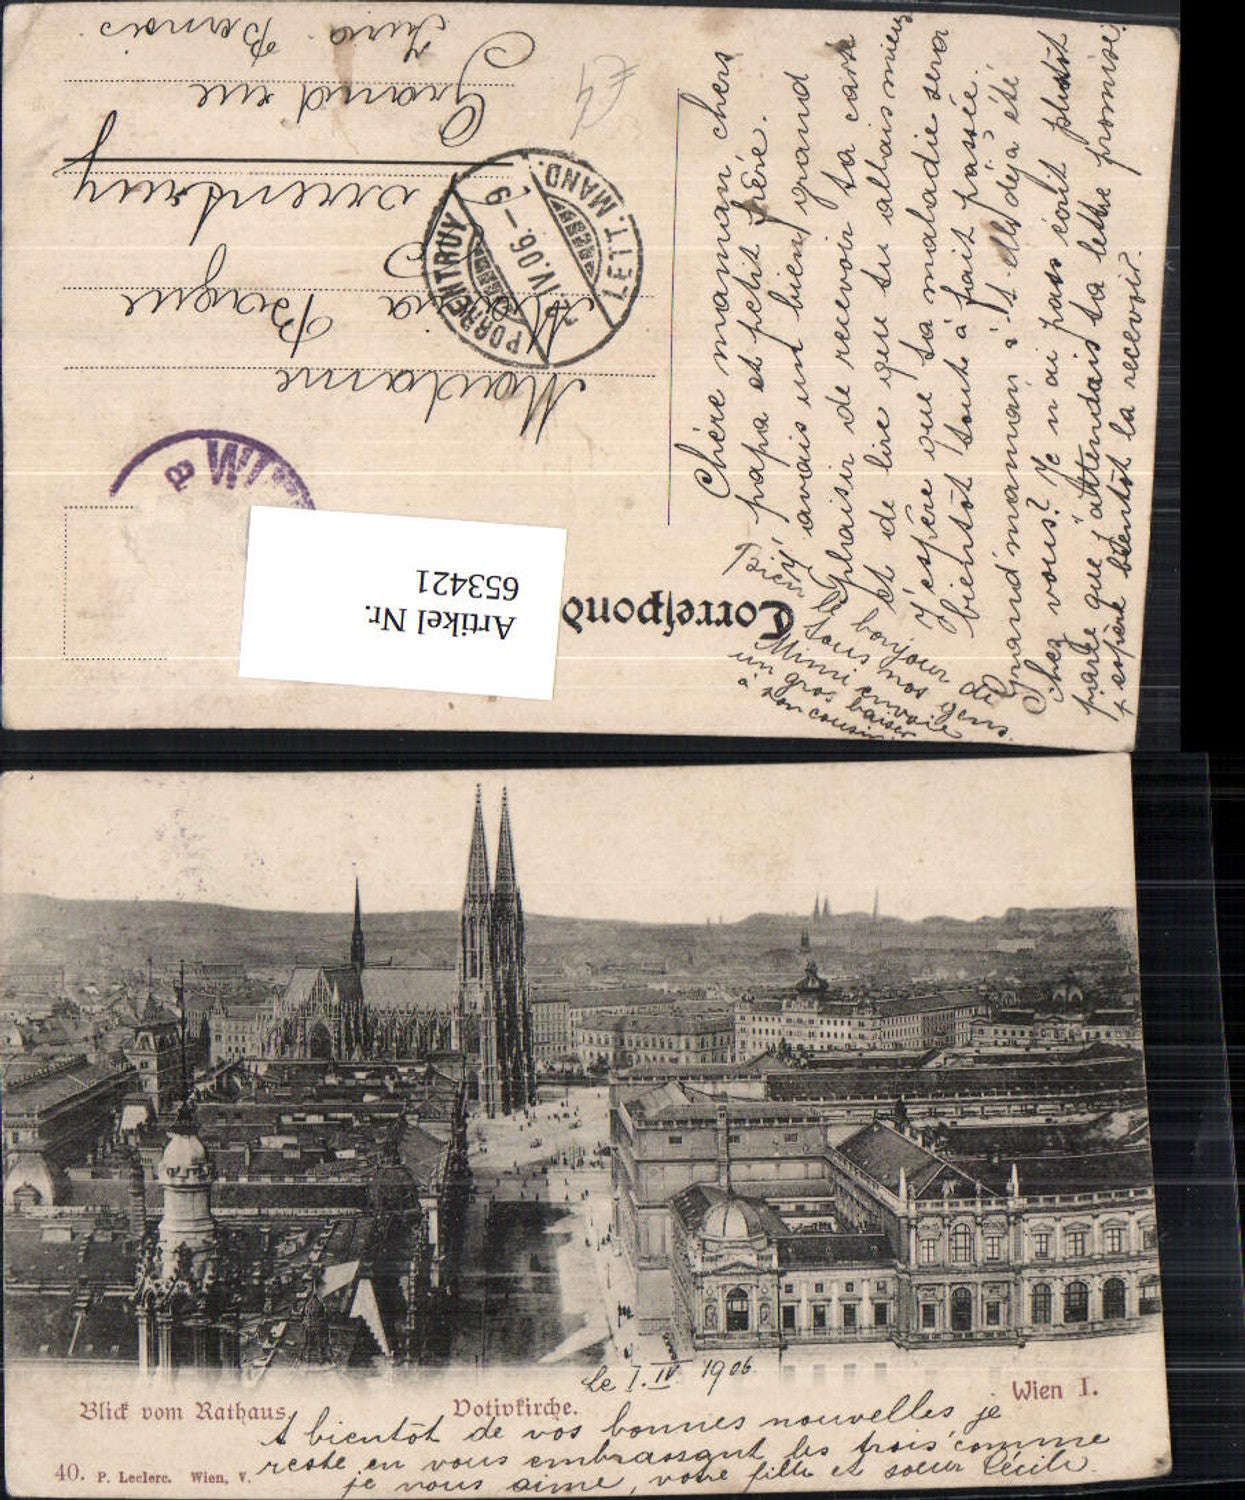 Madame
Maria Boegue
Porrentruy
Grand'rue
Jura Bernois
£4
PORRENTRUY
LETT. MAND.
IV.06.–9
8 WI
Correspond
Artikel Nr.
653421
Chère maman, chers
papa et petit frère.
J'avais un bien grand
plaisir de recevoir ta carte
et de lire que tu allais mieux
J'espère que ta maladie sera
bientôt tout à fait passée.
Grand'maman a't'elle déjà été
chez vous? Je n'ai pas écrit plutôt
parce que j'attendais ta lettre promise,
j'espère bientôt la recevoir.
Bien le bonjour de
tous nos gens.
Mimi envoie
un gros baiser
à son cousin
le I. IV. 1906.
Blick vom Rathaus.
Votivkirche.
Wien I.
A bientôt de vos bonnes nouvelles je
reste en vous embrassant les trois comme
je vous aime, votre fille et soeur Cécile.
40. P. Leclerc. Wien, V.